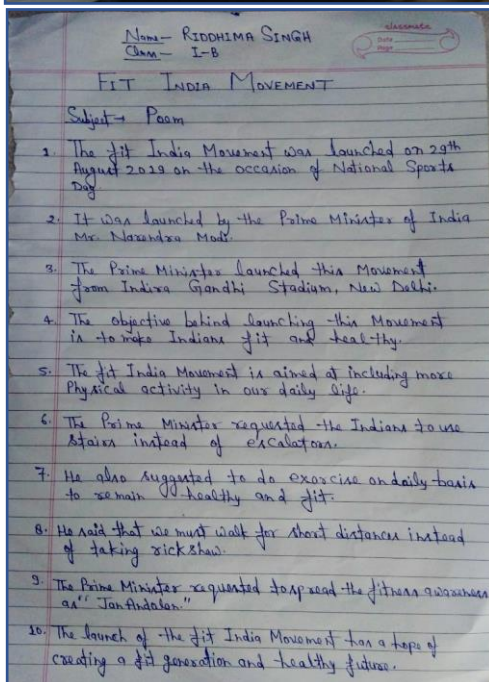 Name - RIDDHIMA SINGH
Class - I-B
classmate
Date
Page
FIT INDIA MOVEMENT
Subject → Poem
1. The fit India Movement was launched on 29th
August 2019 on the occasion of National Sports
Day.
2. It was launched by the Prime Minister of India
Mr. Narendra Modi.
3. The Prime Minister launched this Movement
from Indira Gandhi Stadium, New Delhi.
4. The objective behind launching this Movement
is to make Indians fit and healthy.
5. The fit India Movement is aimed at including more
Physical activity in our daily life.
6. The Prime Minister requested the Indians to use
stairs instead of escalators.
7. He also suggested to do exercise on daily basis
to remain healthy and fit.
8. He said that we must walk for short distances instead
of taking rickshaw.
9. The Prime Minister requested to spread the fitness awareness
as "Jan Andolan."
10. The launch of the fit India Movement has a hope of
creating a fit generation and healthy future.